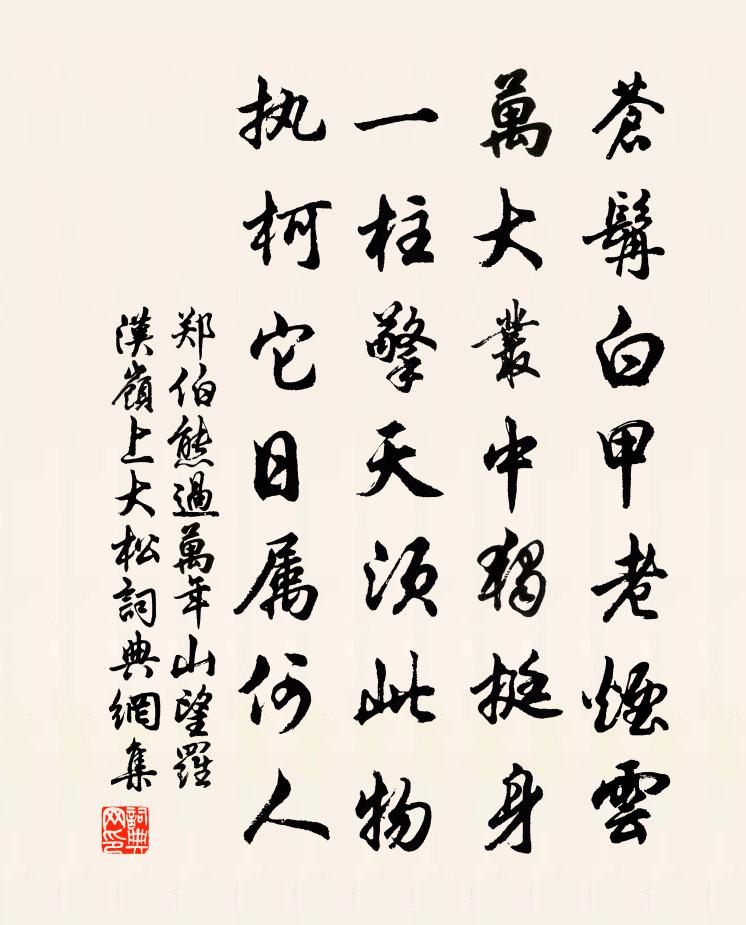 蒼髯白甲老煙雲
萬大叢中獨挺身
一柱擎天須此物
执柯它日属何人
郑伯熊過萬年山望羅
漢嶺上大松詞典網集
詞典网印